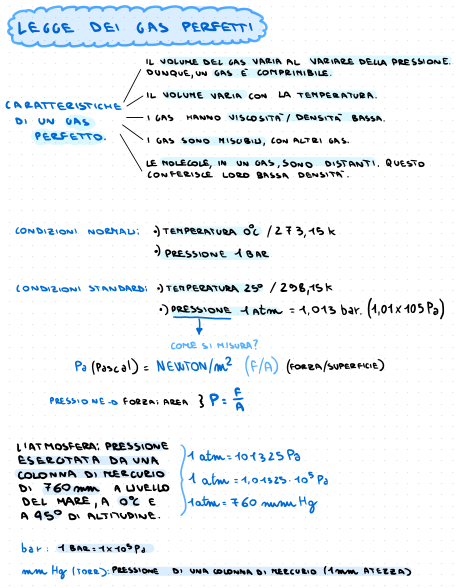 LEGGE DEI GAS PERFETTI
IL VOLUME DEL GAS VARIA AL VARIARE DELLA PRESSIONE.
DUNQUE, UN GAS È COMPRIMIBILE.
IL VOLUME VARIA CON LA TEMPERATURA.
CARATTERISTICHE
DI UN GAS
PERFETTO.
I GAS HANNO VISCOSITÀ/DENSITÀ BASSA.
I GAS SONO MISCIBILI, CON ALTRI GAS.
LE MOLECOLE, IN UN GAS, SONO DISTANTI. QUESTO
CONFERISCE LORO BASSA DENSITÀ.
CONDIZIONI NORMALI: •) TEMPERATURA 0°C / 273,15 K
•) PRESSIONE 1 BAR
CONDIZIONI STANDARD: •) TEMPERATURA 25° / 298,15K
•) PRESSIONE 1 atm = 1,013 bar. (1,01x105 Pa)
COME SI MISURA?
Pa (Pascal) = NEWTON/m² (F/A) (FORZA/SUPERFICIE)
PRESSIONE → FORZA: AREA } P = F/A
L'ATMOSFERA: PRESSIONE
ESERCITATA DA UNA
COLONNA DI MERCURIO
DI 760 mm A LIVELLO
DEL MARE, A 0°C E
A 45° DI ALTITUDINE.
1 atm = 101325 Pa
1 atm = 1,01325 · 10⁵ Pa
1 atm = 760 mm Hg
bar: 1 BAR = 1x10⁵ Pa
mm Hg (TORR): PRESSIONE DI UNA COLONNA DI MERCURIO (1mm ATEZZA)